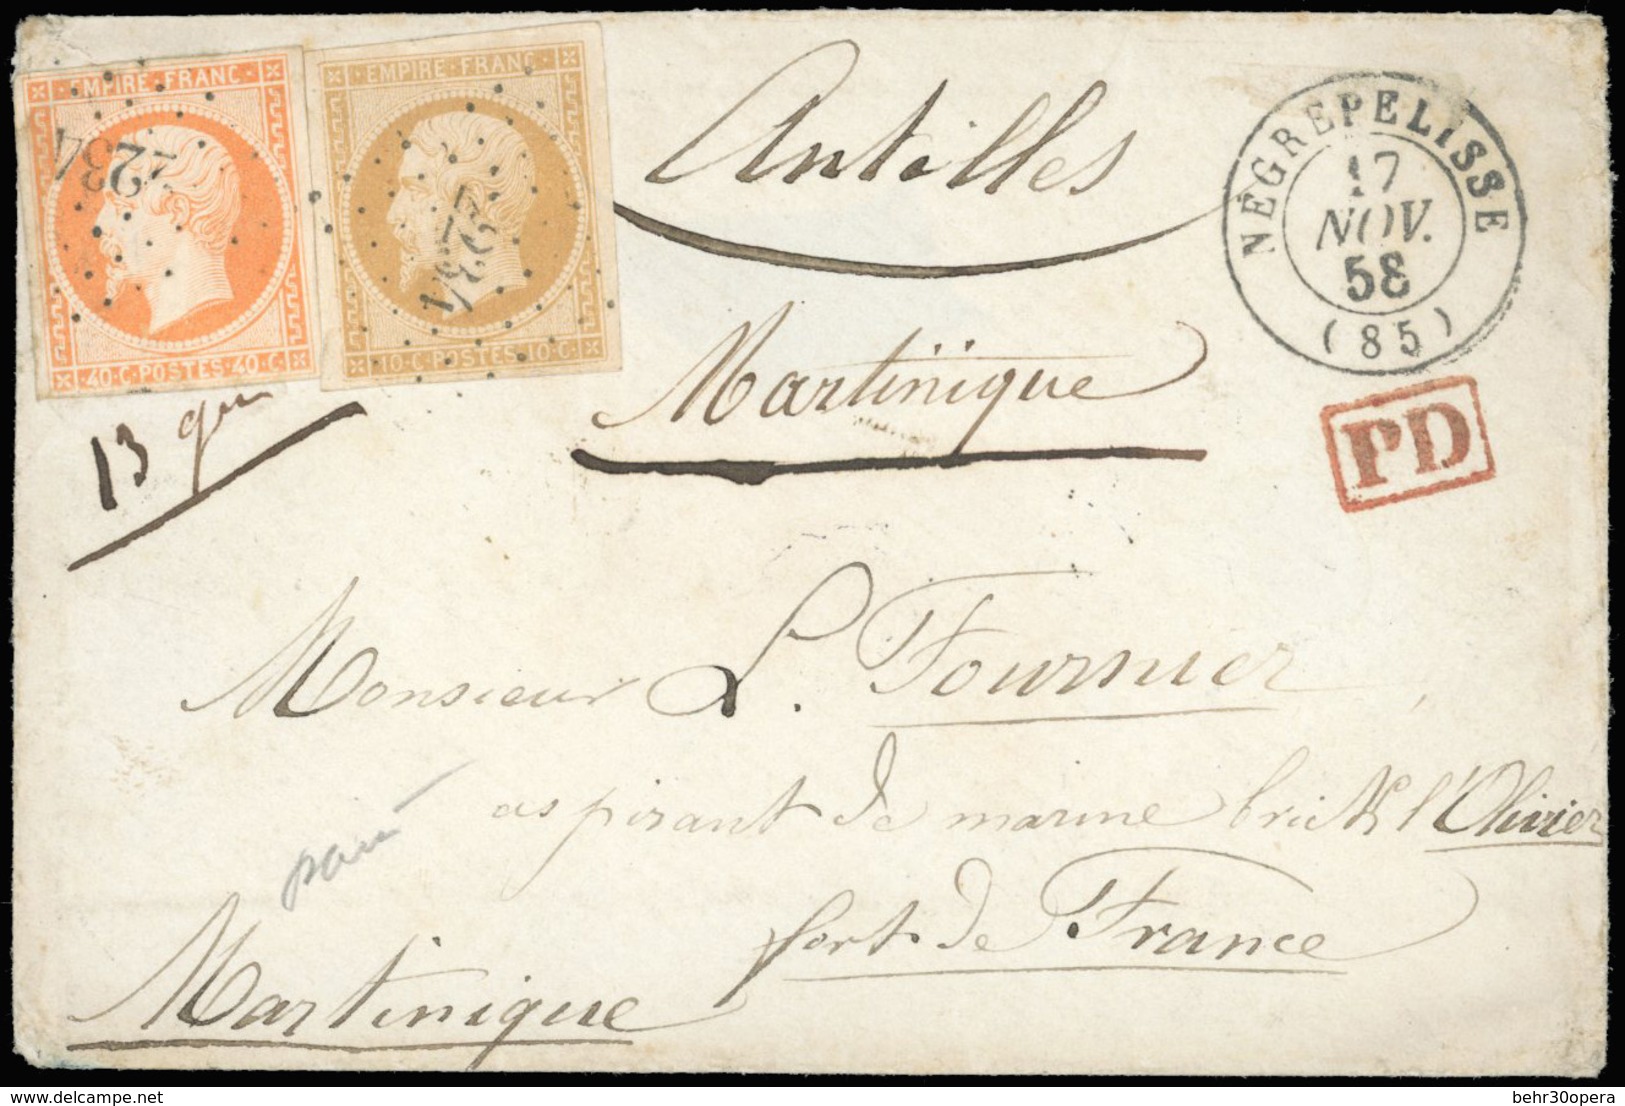 EMPIRE·FRANC·
2234
·40·C·POSTES·40·C·
EMPIRE·FRANC·
2234
·10·C·POSTES·10·C·
Antilles
Martinique
NÉGREPELISSE
17
NOV.
58
(85)
PD
13
Monsieur L. Fournier
aspirant de marine brick l'Olivier
fort de France
Martinique
delcampe.net
behr30opera